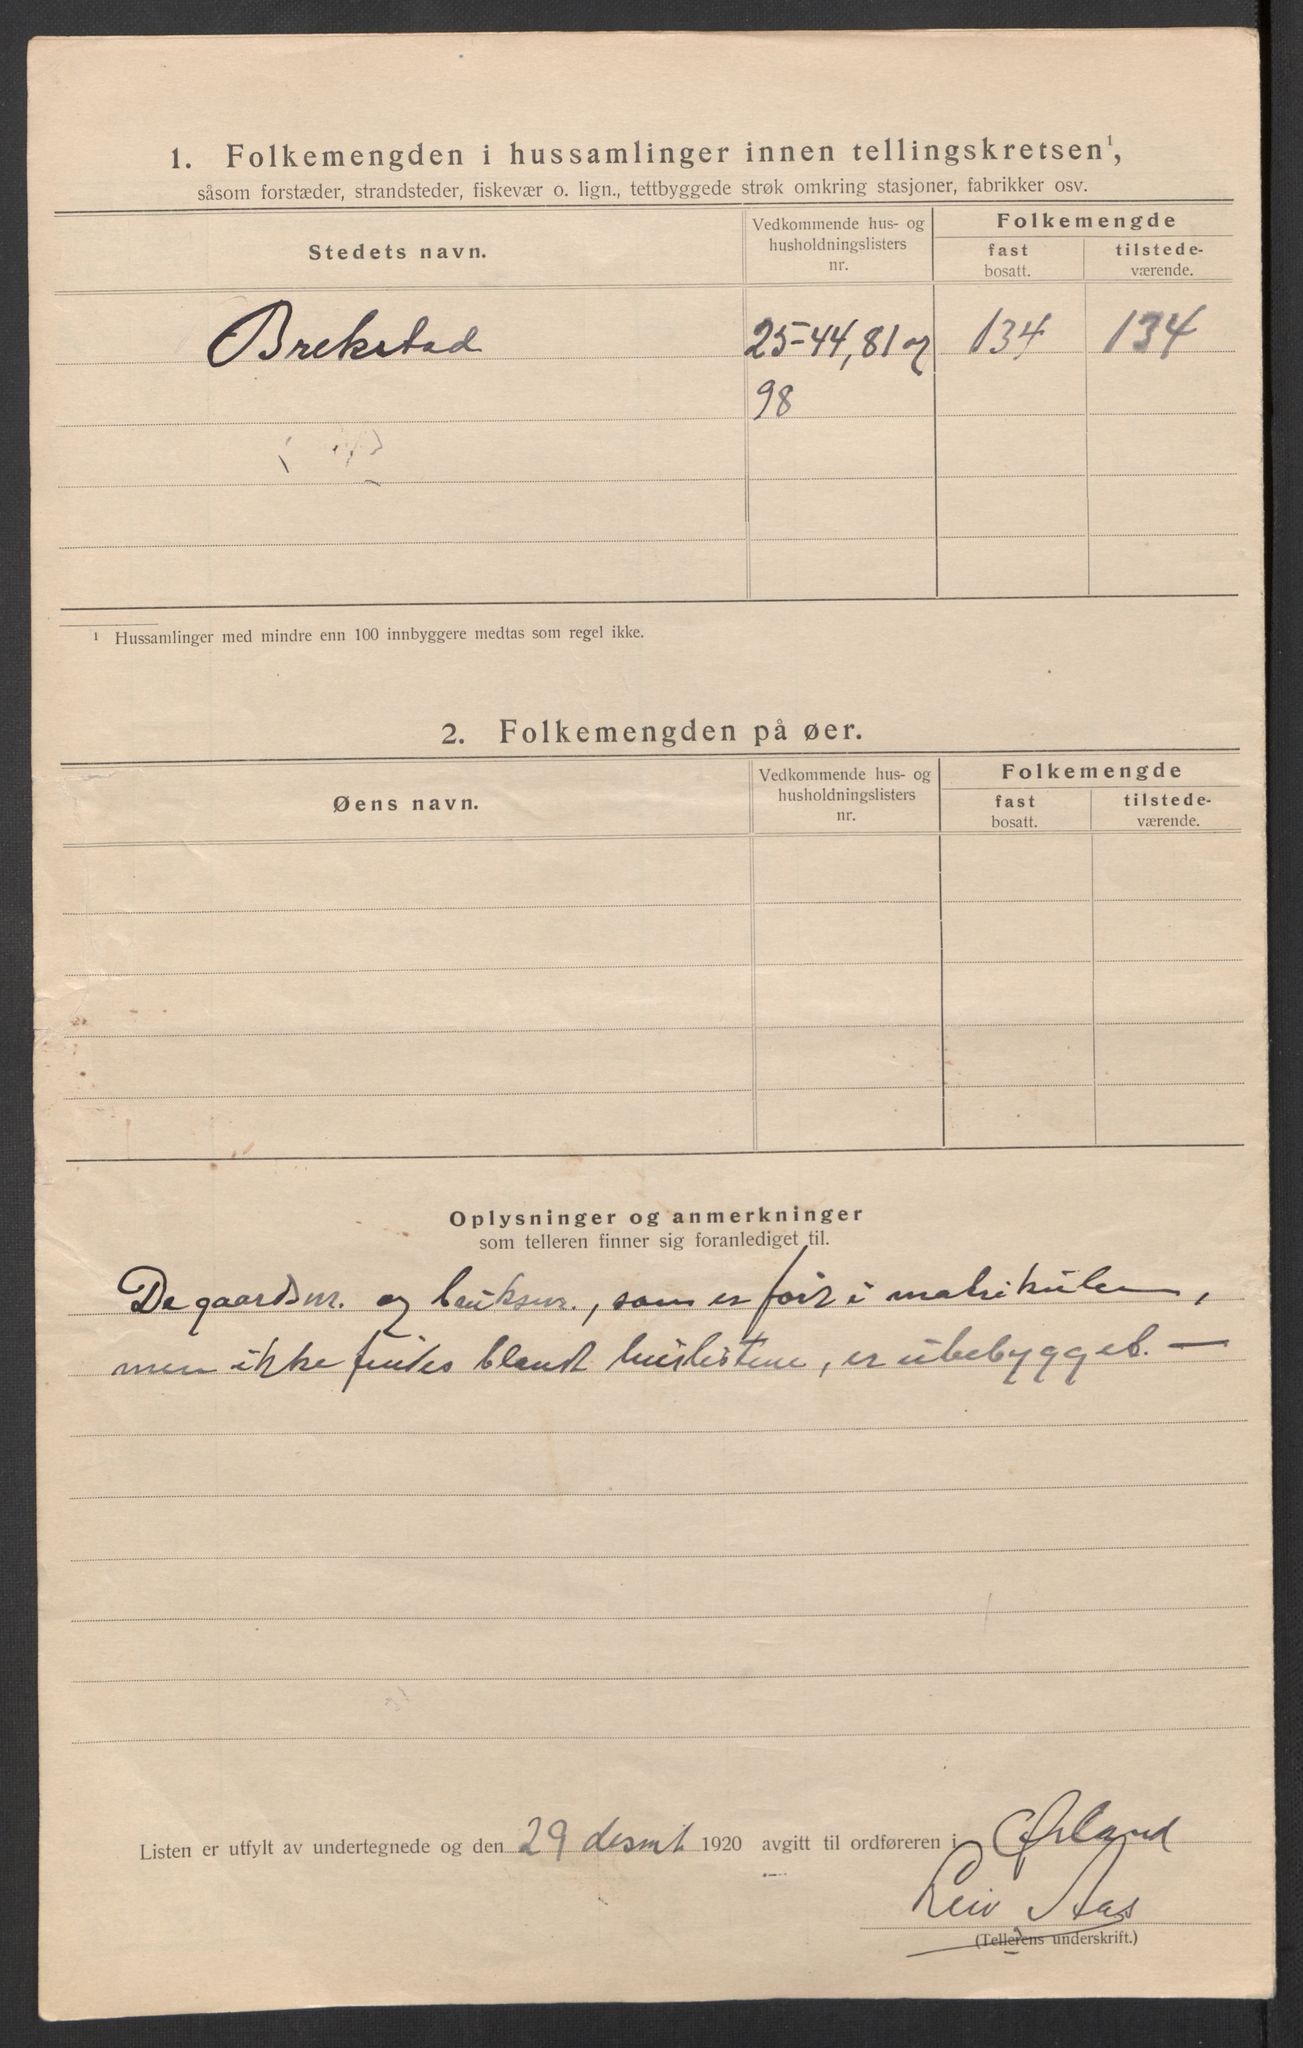 1. Folkemengden i hussamlinger innen tellingskretsen¹,
såsom forstæder, strandsteder, fiskevær o. lign., tettbyggede strøk omkring stasjoner, fabrikker osv.
Stedets navn.
Vedkommende hus- og
husholdningslisters
nr.
Folkemengde
fast
bosatt.
tilstede-
værende.
Brekstad 25-44, 81 og 134 134
98
¹ Hussamlinger med mindre enn 100 innbyggere medtas som regel ikke.
2. Folkemengden på øer.
Øens navn.
Vedkommende hus- og
husholdningslisters
nr.
Folkemengde
fast
bosatt.
tilstede-
værende.
Oplysninger og anmerkninger
som telleren finner sig foranlediget til.
De gaardsnr. og bruksnr., som er ført i matrikulen,
men ikke findes blandt huslistene, er ubebygget. —
Listen er utfylt av undertegnede og den 29 desmb 1920 avgitt til ordføreren i Ørland
Leiv Aas
(Tellerens underskrift.)